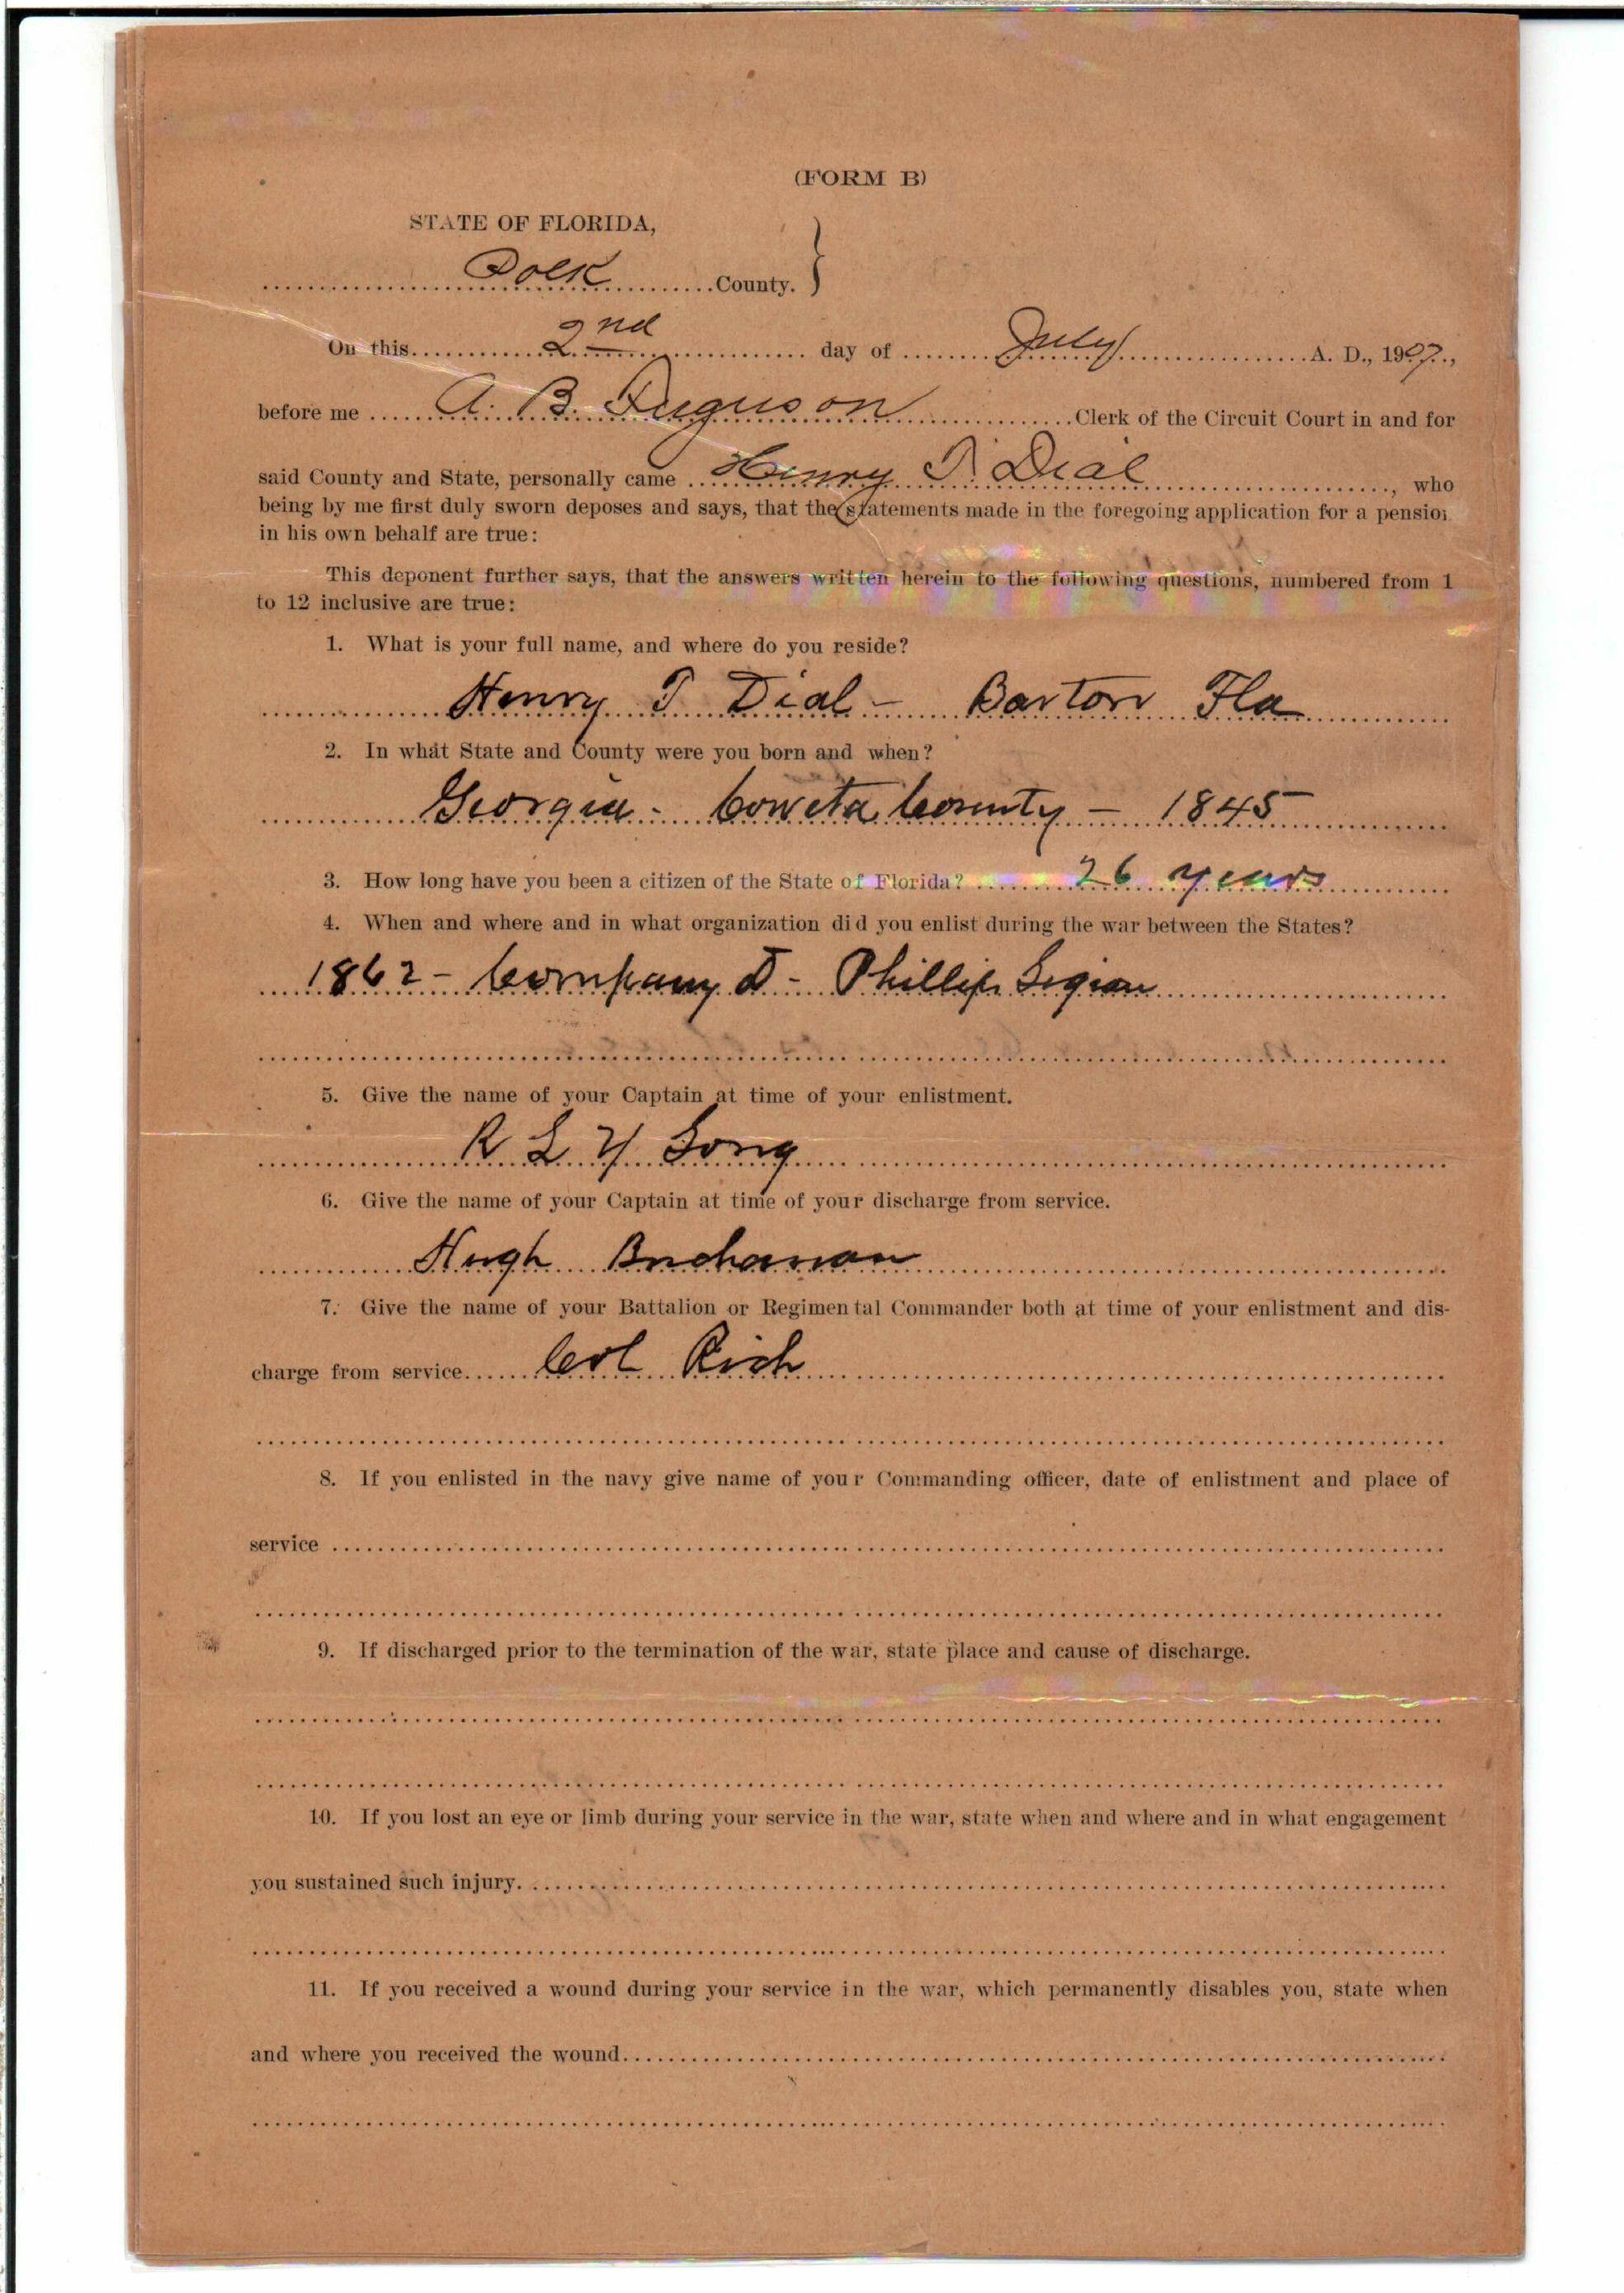 (FORM B)
STATE OF FLORIDA,
Polk County.
On this 2nd day of July A. D., 1907,
before me A. B. Ferguson Clerk of the Circuit Court in and for
said County and State, personally came Henry T. Dial, who
being by me first duly sworn deposes and says, that the statements made in the foregoing application for a pension
in his own behalf are true:
This deponent further says, that the answers written herein to the following questions, numbered from 1
to 12 inclusive are true:
1. What is your full name, and where do you reside?
Henry T Dial - Bartow Fla
2. In what State and County were you born and when?
Georgia - Coweta County - 1845
3. How long have you been a citizen of the State of Florida? 26 years
4. When and where and in what organization did you enlist during the war between the States?
1862 - Company D - Phillip Legion
5. Give the name of your Captain at time of your enlistment.
R L Y Long
6. Give the name of your Captain at time of your discharge from service.
Hugh Buchanan
7. Give the name of your Battalion or Regimental Commander both at time of your enlistment and dis-
charge from service Col Rich
8. If you enlisted in the navy give name of your Commanding officer, date of enlistment and place of
service
9. If discharged prior to the termination of the war, state place and cause of discharge.
10. If you lost an eye or limb during your service in the war, state when and where and in what engagement
you sustained such injury.
11. If you received a wound during your service in the war, which permanently disables you, state when
and where you received the wound